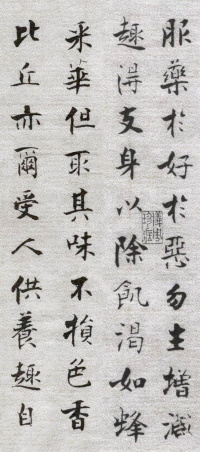 服藥於好於惡勿生增減
趣得支身以除飢渴如蜂
采華但取其味不損色香
比丘亦爾受人供養趣自